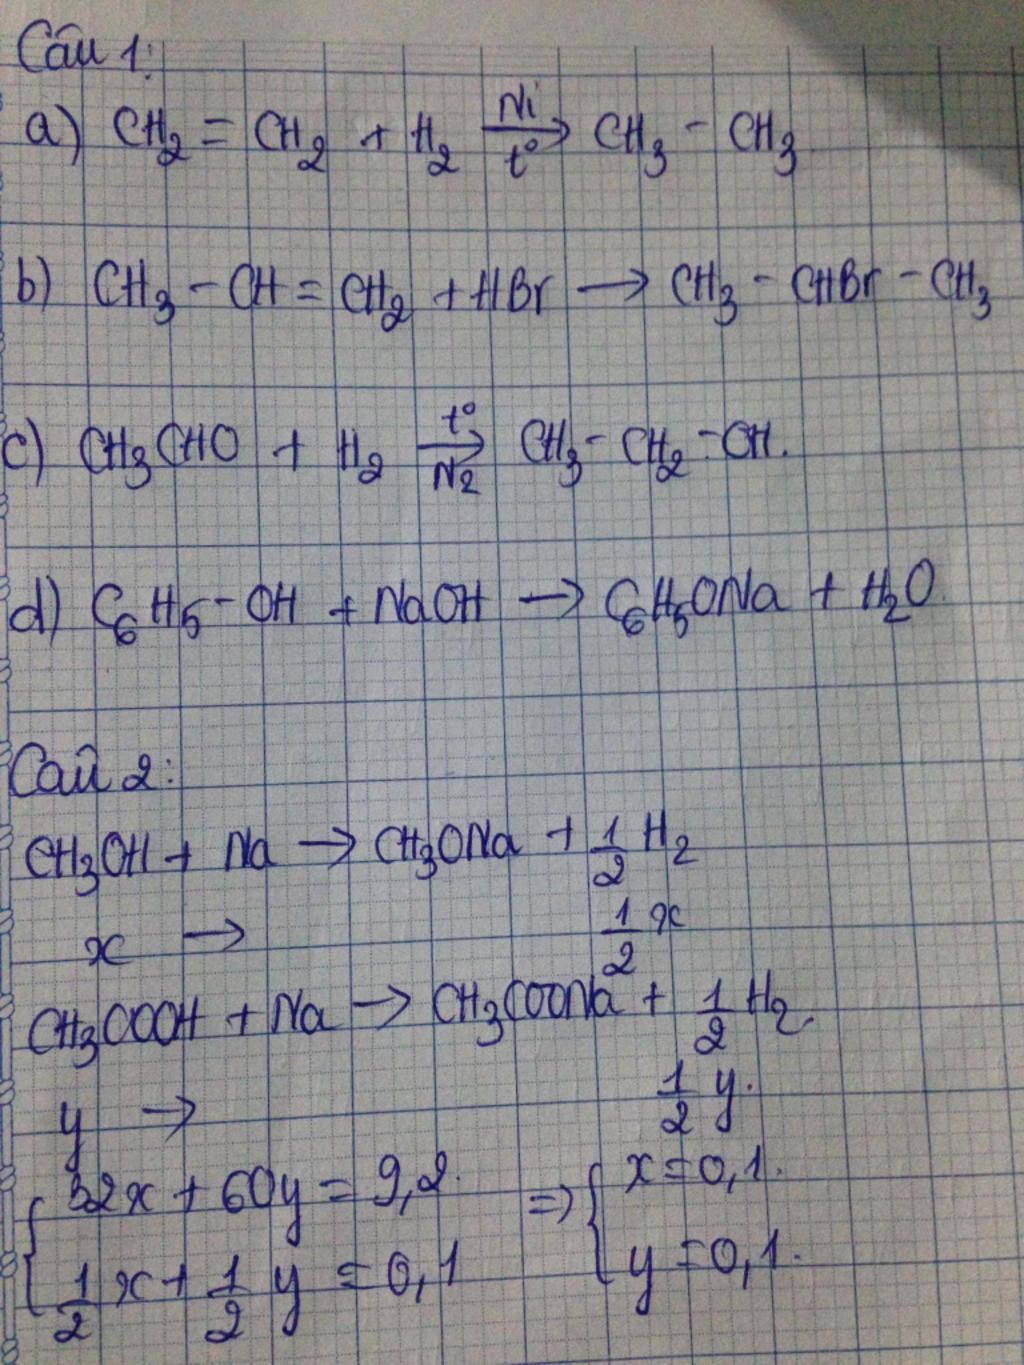 Câu 1:
a) CH₂ = CH₂ + H₂ →(Ni, t°) CH₃ - CH₃
b) CH₃ - CH = CH₂ + HBr → CH₃ - CHBr - CH₃
c) CH₃CHO + H₂ →(t°, N₂) CH₃ - CH₂ - OH.
d) C₆H₅ - OH + NaOH → C₆H₅ONa + H₂O.
Câu 2:
CH₃OH + Na → CH₃ONa + 1/2 H₂
x → 1/2 x
CH₃COOH + Na → CH₃COONa + 1/2 H₂.
y → 1/2 y.
{ 32x + 60y = 9,2. => { x = 0,1.
1/2 x + 1/2 y = 0,1 y = 0,1.